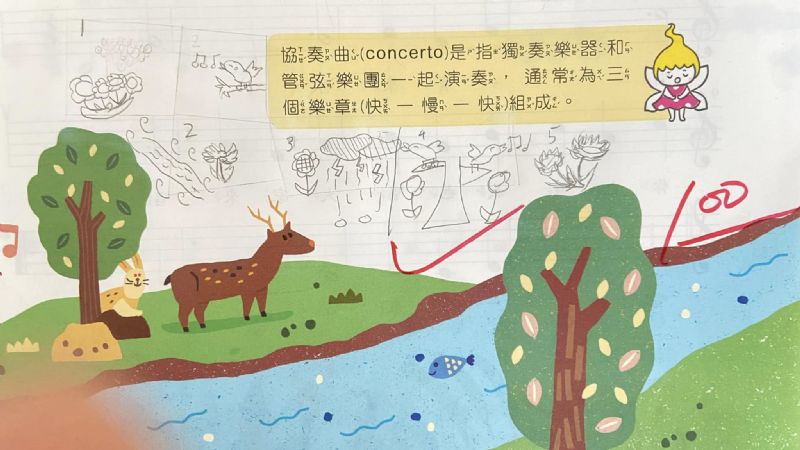 協奏曲(concerto)是指獨奏樂器和
管弦樂團一起演奏，通常為三
個樂章(快—慢—快)組成。
1
2
2
3
4
5
100